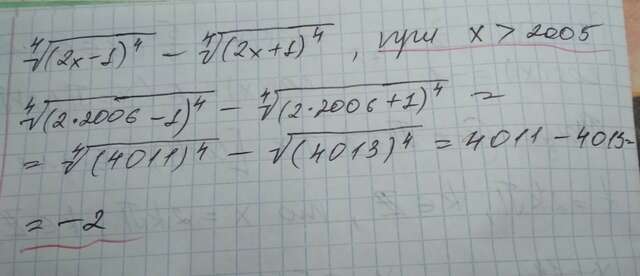 ⁴√(2x-1)⁴ - ⁴√(2x+1)⁴, при x > 2005
⁴√(2·2006-1)⁴ - ⁴√(2·2006+1)⁴ =
= ⁴√(4011)⁴ - √(4013)⁴ = 4011 - 4013=
= -2